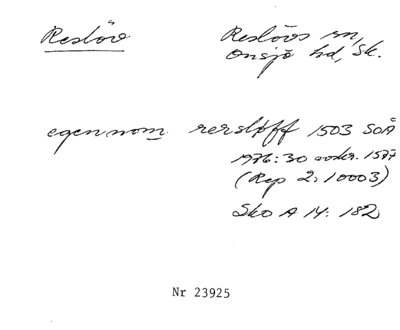 Reslöv
Reslövs sn,
Onsjö hd, Sk.
egennom rersløff 1503 SOÅ
1976:30 vidr. 1577
(Rep 2: 10003)
Sko A 14: 182
Nr 23925